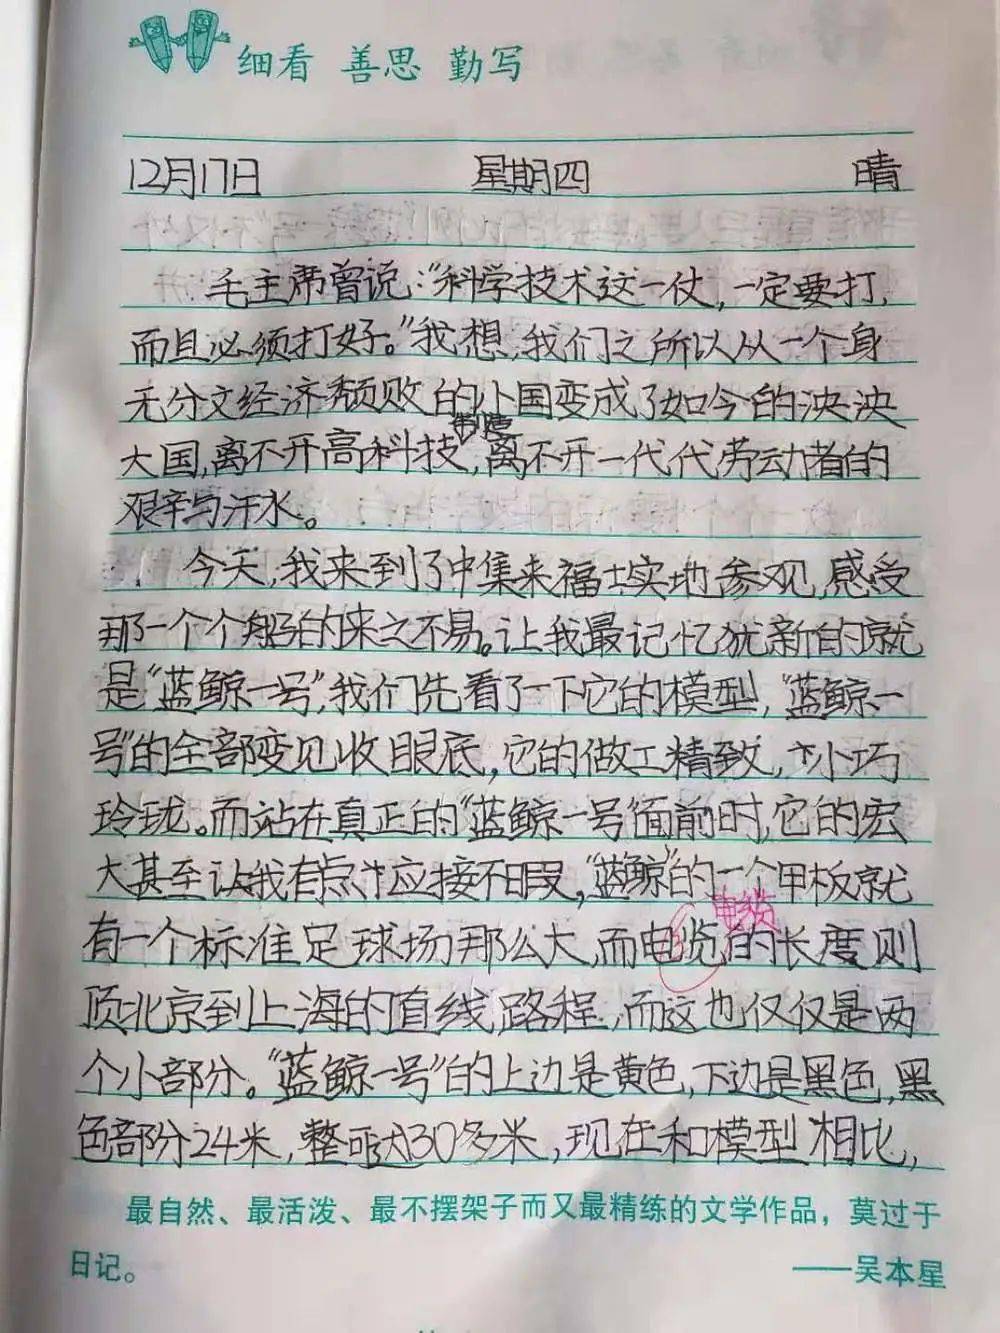 细看 善思 勤写
12月17日 星期四 晴
毛主席曾说:“科学技术这一仗,一定要打,
而且必须打好。”我想,我们之所以从一个身
无分文经济颓败的小国变成了如今的泱泱
制造
大国,离不开高科技,离不开一代代劳动者的
艰辛与汗水。
今天,我来到了中集来福士实地参观,感受
那一个个船的来之不易。让我最记忆犹新的就
是“蓝鲸一号”,我们先看了一下它的模型,“蓝鲸一
号”的全部变见收眼底,它的做工精致,小巧
玲珑。而站在真正的“蓝鲸一号”面前时,它的宏
大甚至让我有点应接不暇,“蓝鲸”的一个甲板就
电缆
有一个标准足球场那么大,而电览的长度则
顶北京到上海的直线路程,而这也仅仅是两
个小部分。“蓝鲸一号”的上边是黄色,下边是黑色,黑
色部分24米,整30多米,现在和模型相比,
最自然、最活泼、最不摆架子而又最精练的文学作品，莫过于
日记。 ——吴本星